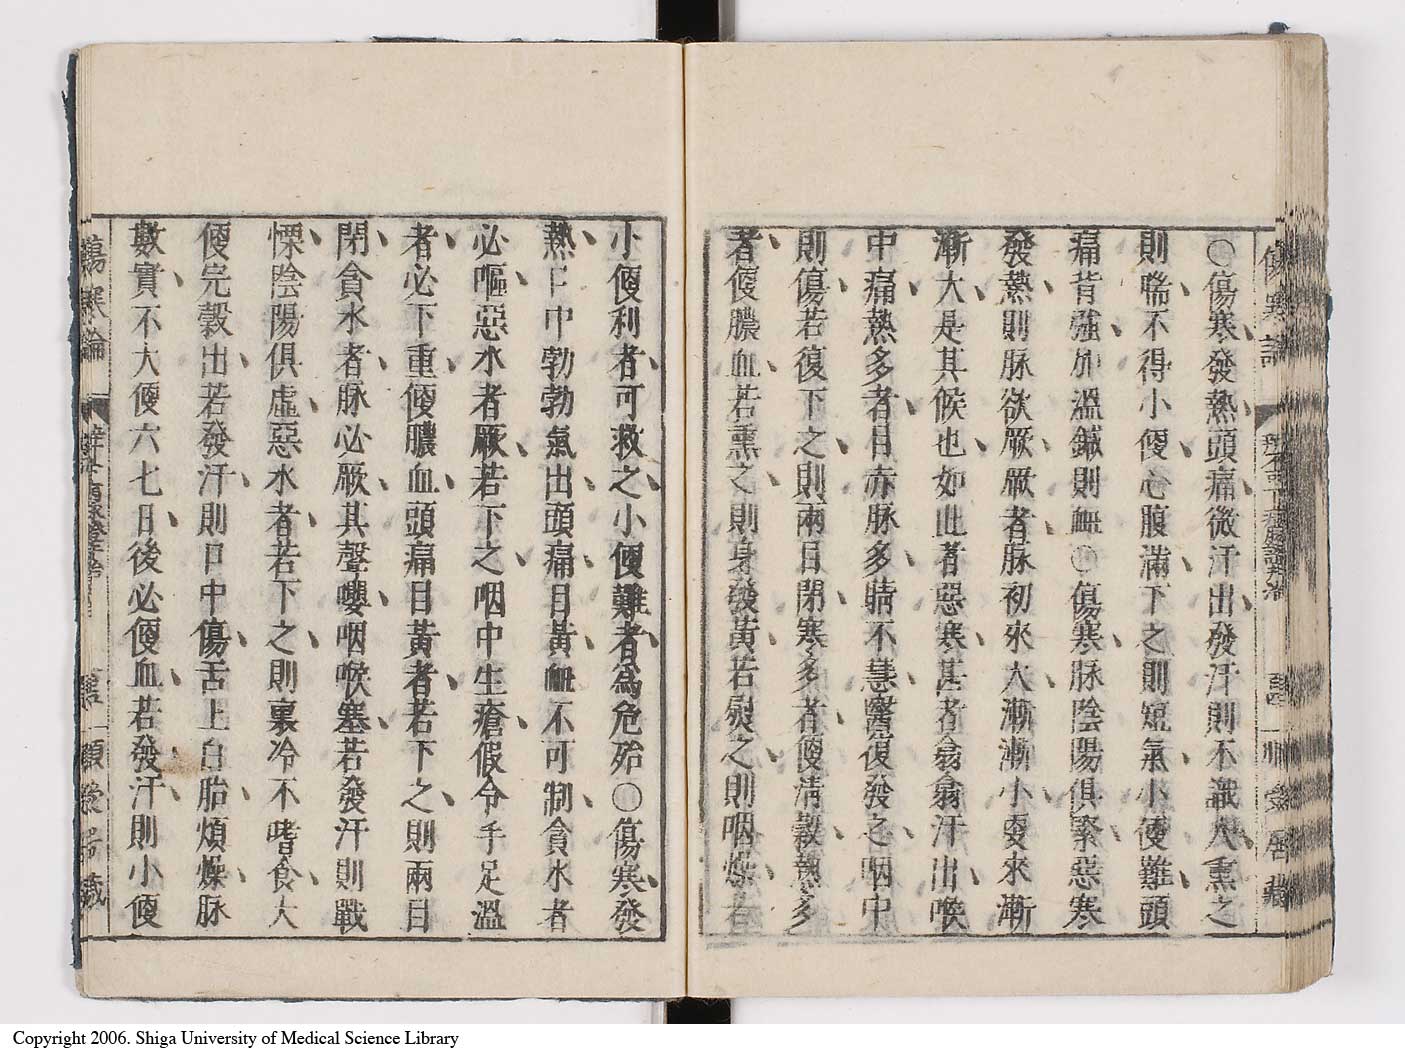 傷寒論
◯傷寒發熱頭痛微汗出發汗則不識人熏之
則喘不得小便心腹滿下之則短氣小便難頭
痛背強加溫鍼則衄◯傷寒脉陰陽俱緊惡寒
發熱則脉欲厥厥者脉初來大漸漸小更來漸
漸大是其候也如此者惡寒甚者翕翕汗出喉
中痛熱多者目赤脉多睛不慧醫復發之咽中
則傷若復下之則兩目閉寒多者便清穀熱多
者便膿血若熏之則身發黃若熨之則咽燥若
小便利者可救之小便難者爲危殆◯傷寒發
熱口中勃勃氣出頭痛目黃衄不可制貪水者
必嘔惡水者厥若下之咽中生瘡假令手足溫
者必下重便膿血頭痛目黃者若下之則兩目
閉貪水者脉必厥其聲嚶咽喉塞若發汗則戰
慄陰陽俱虛惡水者若下之則裏冷不嗜食大
便完穀出若發汗則口中傷舌上白胎煩燥脉
數實不大便六七日後必便血若發汗則小便
傷寒論